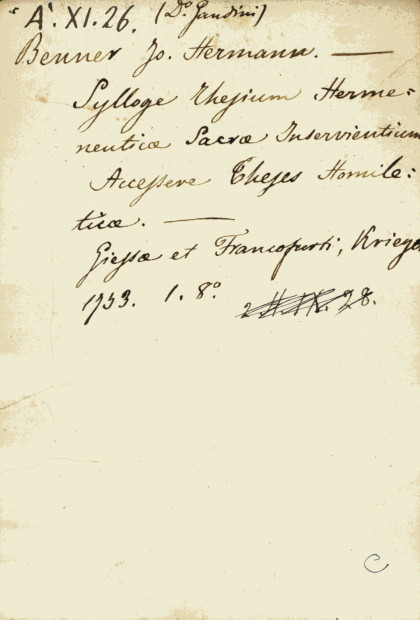 A'. XI. 26. (Do. Gandini)
Benner Jo. Hermann. —
Sylloge Thesium Herme=
neuticæ Sacræ Inservientium
Accessere Theses Homile:
ticæ. —
Giessæ et Francofurti, Krieger
1753. 1. 8o.
28.
C